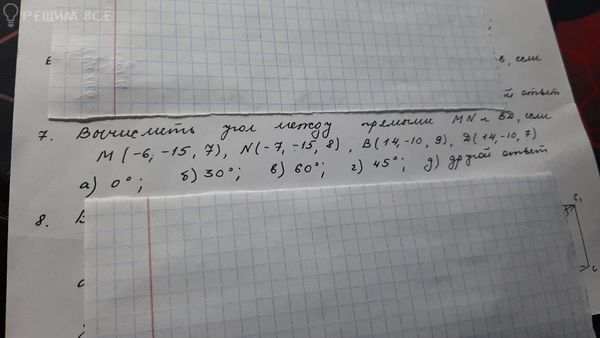 РЕШИМ ВСЁ
6
в, если
й ответ
7. Вычислить угол между прямыми MN и BD, если
M(-6, -15, 7), N(-7, -15, 8), B(14, -10, 9), D(14, -10, 7)
а) 0°; б) 30°; в) 60°; г) 45°; д) другой ответ
8. В
C₁
C